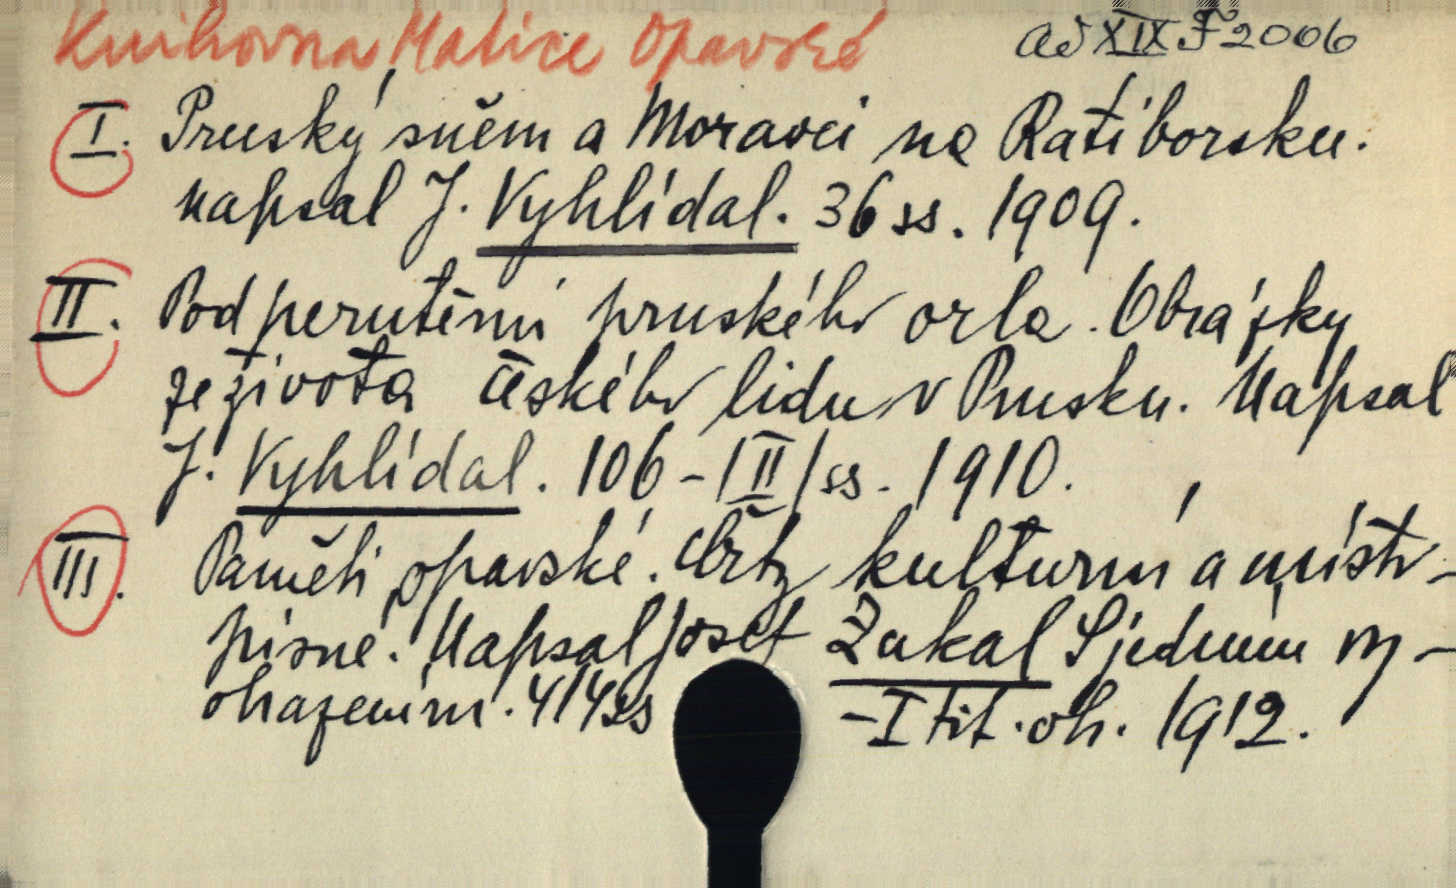 Knihovna Matice Opavské ad XIX F 2006
I. Pruský sněm a Moravci na Ratiborsku.
napsal J. Vyhlídal. 36 ss. 1909.
II. Pod perutěmi pruského orla. Obrázky
ze života českého lidu v Prusku. Napsal
J. Vyhlídal. 106 - /II/ ss. 1910.
III. Paměti opavské. Črty kulturní a místo-
pisné. Napsal Josef Zukal S jedním vy-
obrazením. 414 ss - I tit. obr. 1912.